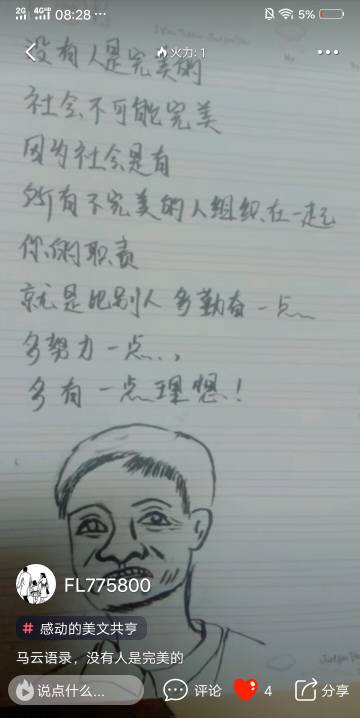 2G 4G 08:28 ··· 5%
火力: 1 ···
没有人是完美的
社会不可能完美
因为社会是有
所有不完美的人组织在一起
你的职责
就是比别人多勤奋一点
多努力一点,
多有一点理想!
FL775800
# 感动的美文共亨
马云语录，没有人是完美的
说点什么...
评论
4
分享